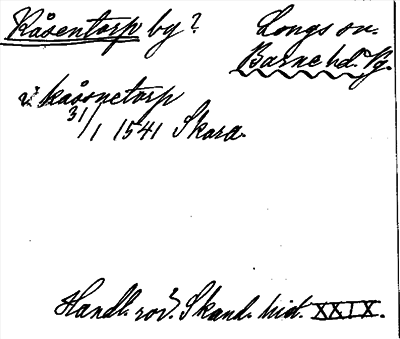 Råsentorp by? Longs sn.
Barne hd. Vg.
i kåsonetorp
31/1 1541 Skara.
Handl. rör. Skand. hist. XXIX.